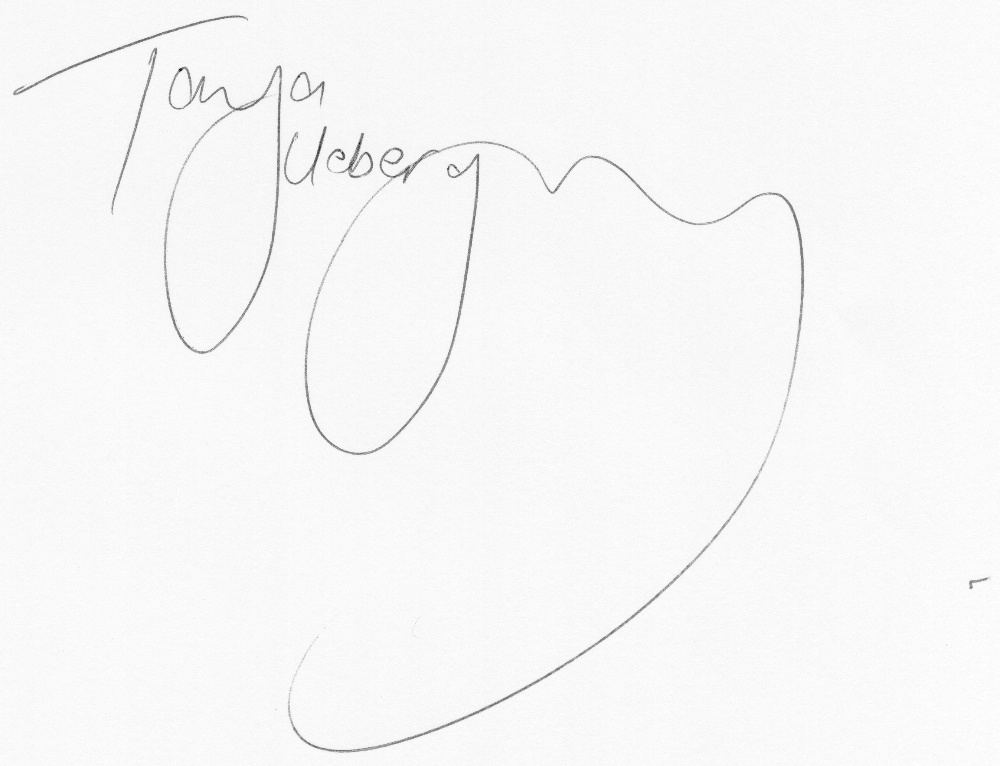 Tanja
Ueberg